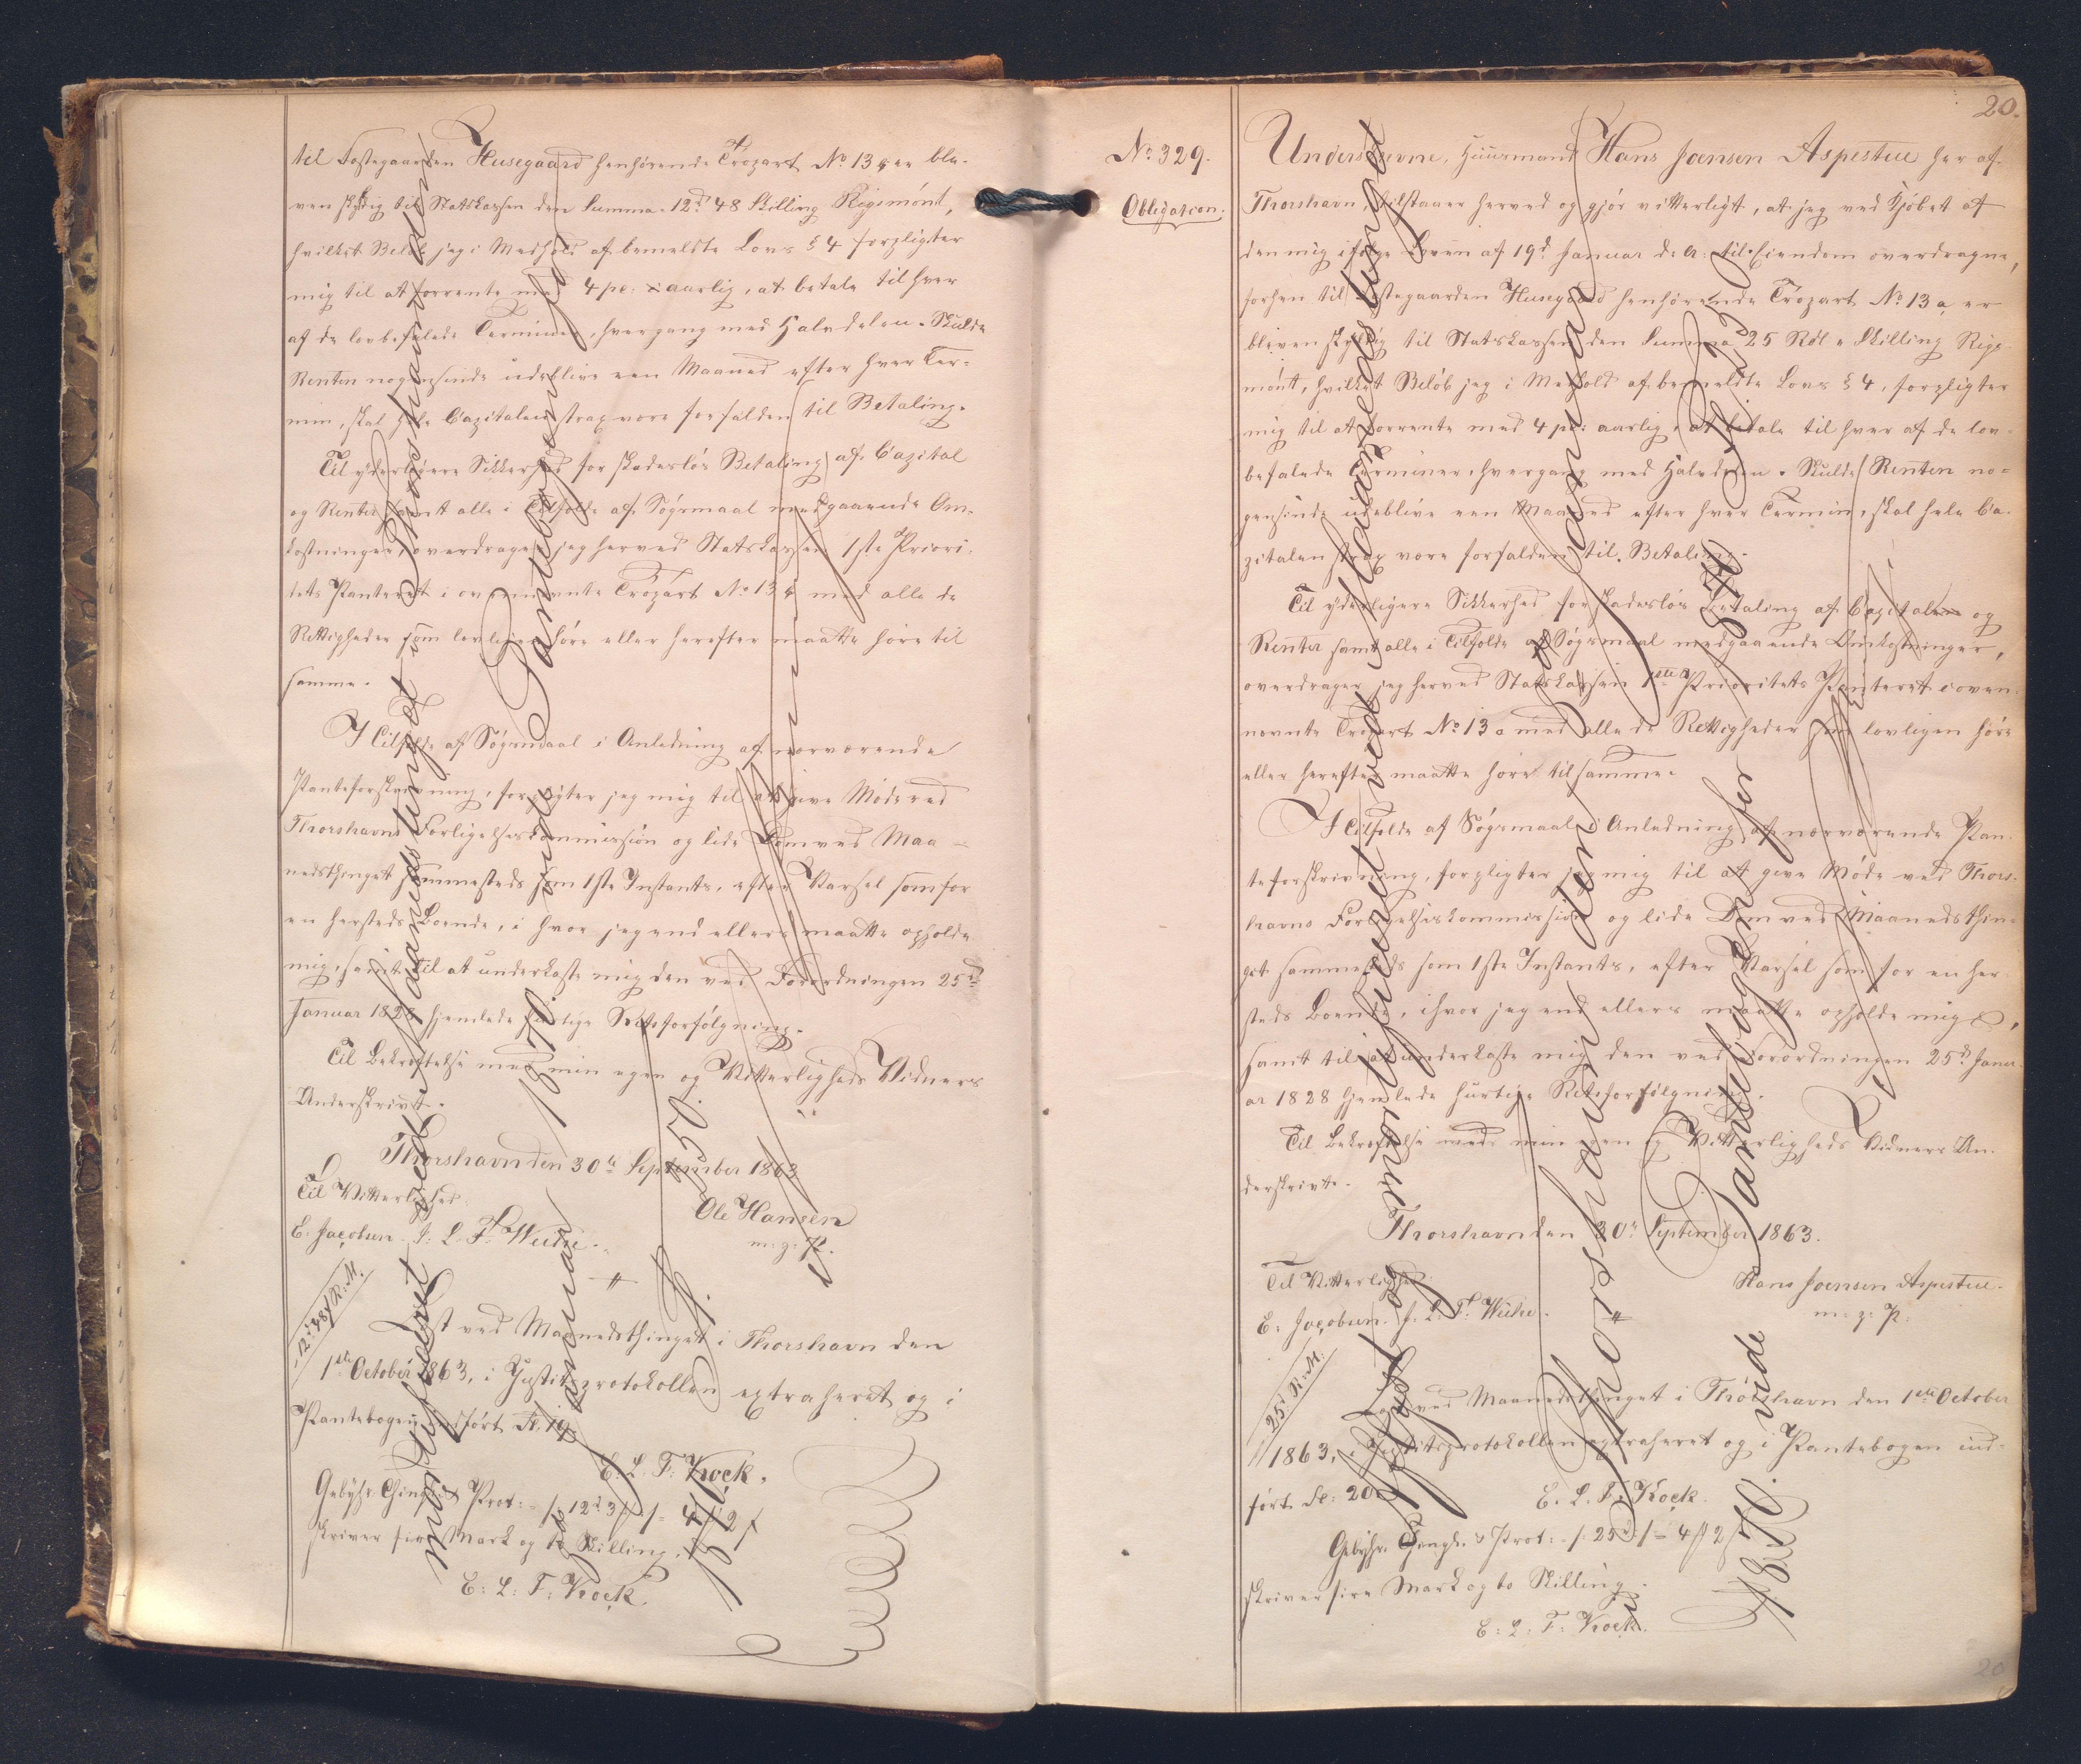 til Festegaarden Husegaard henhørende Trøpart No 13 er ble-
ven skyldig til Statskassen den Summa 12 rd 48 Skilling Rigsmønt,
hvilket Beløb jeg i Medhold af bemeldte Lovs § 4 forpligter
mig til at forrente med 4 pc: aarlig, at betale til hver
af de lovbefalede Terminer, hvergang med Halvdelen. Skulde
Renten nogensinde udeblive een Maaned efter hver Ter-
min, skal hele Capitalen strax være forfalden til Betaling.
Til yderligere Sikkerhed for skadesløs Betaling af Capital
og Renter samt alle i Tilfælde af Søgsmaal medgaaende Om-
kostninger, overdrager jeg herved Statskassen 1ste Priori-
tets Panteret i ovennævnte Trøpart No 13 med alle de
Rettigheder som lovligen høre eller herefter maatte høre til
samme.
I Tilfælde af Søgsmaal i Anledning af nærværende
Panteforskrivning, forpligter jeg mig til at give Møde ved
Thorshavns Forligelseskommission og lide Dom ved Maa-
nedsthinget sammesteds som 1ste Instants, efter Varsel som for
en hersteds Boende, i hvor jeg end ellers maatte opholde
mig, samt til at underkaste mig den ved Forordningen 25d
Januar 1828 hjemlede hurtige Retsforfølgning.
Til Bekræftelse med min egen og Vitterligheds Vidners
Underskrivt.
Thorshavn den 30te September 1863
Til Vitterlighed:
Ole Hansen
E. Jacobsen. J: L. F. Weihe.
m: g: P.
12 rd 48 s R: M.
Læst ved Maanedsthinget i Thorshavn den
1ste October 1863, i Justitsprotokollen extraheret og i
Pantebogen indført Fl. 19
E. L. F: Kock.
Gebyhr Thingl: & Prot: /: 12 rd 3 /= 4 2 s
skriver fire Mark og to Skilling.
E: L: F: Kock.
mortificeret ved Maanedstinget i Thorshavn den
januar 1870 vide Pantebogen for
No 329.
Obligation.
20.
Underskrevne, Huusmand Hans Joensen Aspestue her af
Thorshavn, tilstaaer herved og gjør vitterligt, at jeg ved Kjøbet af
den mig ifølge Loven af 19d Januar d: A: til Eiendom overdragne,
forhen til Festegaarden Husegaard henhørende Trøpart No 13 a er
bleven skyldig til Statskassen den Summa 25 Rdl " Skilling Rigs-
mønt, hvilket Beløb jeg i Medhold af bemeldte Lovs § 4, forpligter
mig til at forrente med 4 pc: aarlig, at betale til hver af de lov-
befalede Terminer, hvergang med Halvdelen. Skulde Renten no-
gensinde udeblive een Maaned efter hver Termin, skal hele Ca-
pitalen strax være forfalden til Betaling.
Til yderligere Sikkerhed for skadesløs Betaling af Capitalen og
Renter samt alle i Tilfælde af Søgsmaal medgaaende Omkostninger,
overdrager jeg herved Statskassen 1ste Prioritets Panteret i oven-
nævnte Trøpart No 13 a med alle de Rettigheder som lovligen høre
eller herefter maatte høre til samme.
I Tilfælde af Søgsmaal i Anledning af nærværende Pan-
teforskrivning, forpligter jeg mig til at give Møde ved Thors-
havns Forligelseskommission og lide Dom ved Maanedsthin-
get sammesteds som 1ste Instants, efter Varsel som for en her-
steds Boende, i hvor jeg end ellers maatte opholde mig,
samt til at underkaste mig den ved Forordningen 25d Janu-
ar 1828 hjemlede hurtige Retsforfølgning.
Til Bekræftelse med min egen og Vitterligheds Vidners Un-
derskrivt.
Thorshavn den 30te September 1863.
Til Vitterlighed:
Hans Joensen Aspestue.
E: Jacobsen. J. L: F. Weihe.
m: g: P:
25 rd R: M:
Læst ved Maanedsthinget i Thorshavn den 1ste October
1863, i Justitsprotokollen extraheret og i Pantebogen ind-
ført Fl: 20.
E. L. F. Kock.
Gebyhr. Thingl. & Prot: /: 25 rd /= 4 2
skriver fire Mark og to Skilling.
E: L: F: Kock.
mortificeret ved Maanedstinget
Thorshavn den januar
1870 vide Pantebogen for
20